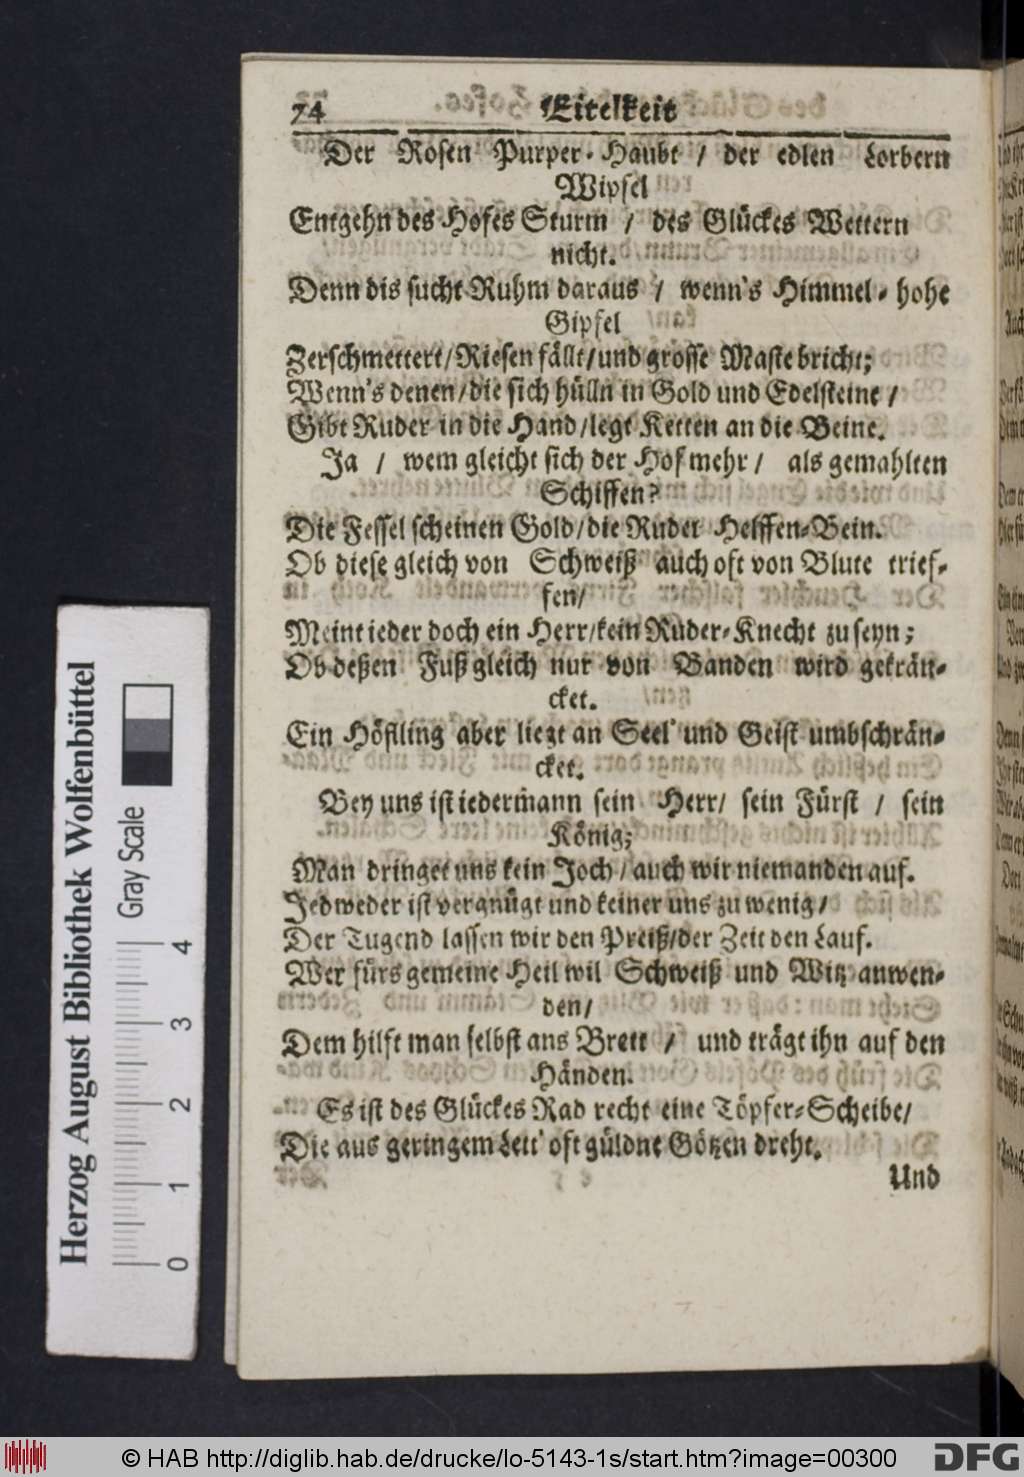 74 Eitelkeit
Der Rosen Purper-Haubt / der edlen Lorbern
Wipfel
Entgehn des Hofes Sturm / des Glückes Wettern
nicht.
Denn dis sucht Ruhm daraus / wenn's Himmel-hohe
Gipfel
Zerschmettert/Riesen fällt/und grosse Maste bricht;
Wenn's denen/die sich hülln in Gold und Edelsteine /
Gibt Ruder in die Hand/legt Ketten an die Beine.
Ja / wem gleicht sich der Hof mehr / als gemahlten
Schiffen?
Die Fessel scheinen Gold/die Ruder Helffen-Bein.
Ob diese gleich von Schweiß auch oft von Blute trief-
fen/
Meint ieder doch ein Herr/kein Ruder-Knecht zu seyn;
Ob deßen Fuß gleich nur von Banden wird gekrän-
cket.
Ein Höfling aber liegt an Seel' und Geist umbschrän-
cket.
Bey uns ist iederm̃ann sein Herr/ sein Fürst / sein
König;
Man dringet uns kein Joch / auch wir niemanden auf.
Jedweder ist vergnügt und keiner uns zu wenig /
Der Tugend lassen wir den Preiß/der Zeit den Lauf.
Wer fürs gemeine Heil wil Schweiß und Witz anwen-
den/
Dem hilft man selbst ans Brett / und trägt ihn auf den
Händen.
Es ist des Glückes Rad recht eine Töpfer-Scheibe/
Die aus geringem Lett' oft güldne Götzen dreht.
Und
Herzog August Bibliothek Wolfenbüttel
Gray Scale
0 1 2 3 4
© HAB http://diglib.hab.de/drucke/lo-5143-1s/start.htm?image=00300
DFG